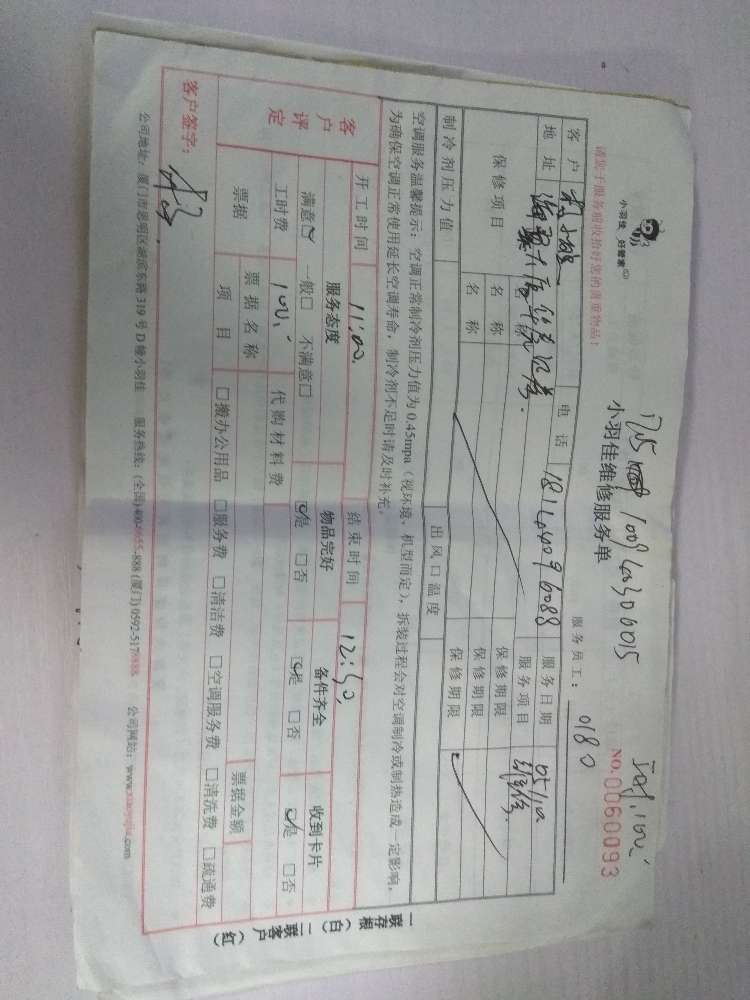 小羽佳 好管家
请您于服务前收拾好您的贵重物品！
小羽佳维修服务单
NO.0060093
服务员工： 0180
客户 电话 18124096088 服务日期
地址 服务项目 维修
保修项目 名称 保修期限
名称 保修期限
名称 保修期限
制冷剂压力值 出风口温度
空调服务温馨提示：空调正常制冷剂压力值为0.45mpa（视环境、机型而定），拆装过程会对空调制冷或制热造成一定影响，
为确保空调正常使用延长空调寿命，制冷剂不足时请及时补充。
开工时间 11:00 结束时间 12:30
客户评定
服务态度 物品完好 备件齐全 收到卡片
满意☑ 一般□ 不满意□ ☑是 □否 ☑是 □否 ☑是 □否
工时费 100 代购材料费
票据 票据名称 票据金额
项目 □搬办公用品 □服务费 □清洁费 □空调服务费 □清洗费 □疏通费
客户签字：
公司地址：厦门市思明区湖滨东路319号D幢小羽佳 服务热线：
公司网站：www.xiaoyujia.com
一联存根（白） 二联客户（红）